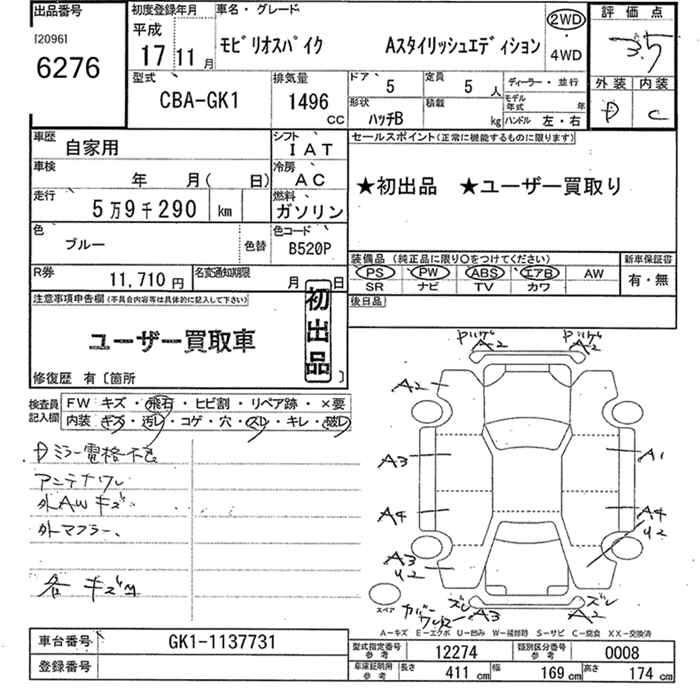 出品番号
120961
6276
初度登録年月
平成
17 11月
車名・グレード
モビリオスパイク Aスタイリッシュエディション
2WD
・
4WD
評価点
3.5
外装 内装
D C
型式
CBA-GK1
排気量
1496
CC
ドア 5
定員 5 人
ディーラー・並行
形状 ハッチB
積載 kg
モデル年式 年
ハンドル 左・右
車歴 自家用
シフト IAT
車検 年 月( 日)
冷房 AC
走行 5万9千290 km
燃料 ガソリン
色 ブルー
色替
色コード B520P
R券 11,710円
名変通知期限 月 日
セールスポイント(正常に機能するものに限ります)
★初出品 ★ユーザー買取り
装備品(純正品に限り〇をつけてください)
新車保証書
PS PW ABS エアB AW
SR ナビ TV カワ
有・無
後日品
注意事項申告欄(不具合内容等は具体的に記入して下さい)
ユーザー買取車
初出品
修復歴 有〔箇所 〕
検査員記入欄
FW キズ・飛石・ヒビ割・リペア跡・×要
内装・キズ・汚レ・コゲ・穴・スレ・キレ・破レ
Dミラー電格不良
アンテナワレ
外AWキズ
外マフラー、
各キズ
A2 A2
A2
A3 A1
A4 A4
U2
A3
U2
スペア
カバーワレ ズレ A3
ズレ A2
A-キズ E-エクボ U-凹み W-補修跡 S-サビ C-腐食 XX-交換済
車台番号 GK1-1137731
登録番号
型式指定番号参考 12274
類別区分番号参考 0008
車庫証明用参考 長さ 411cm 幅 169cm 高さ 174cm